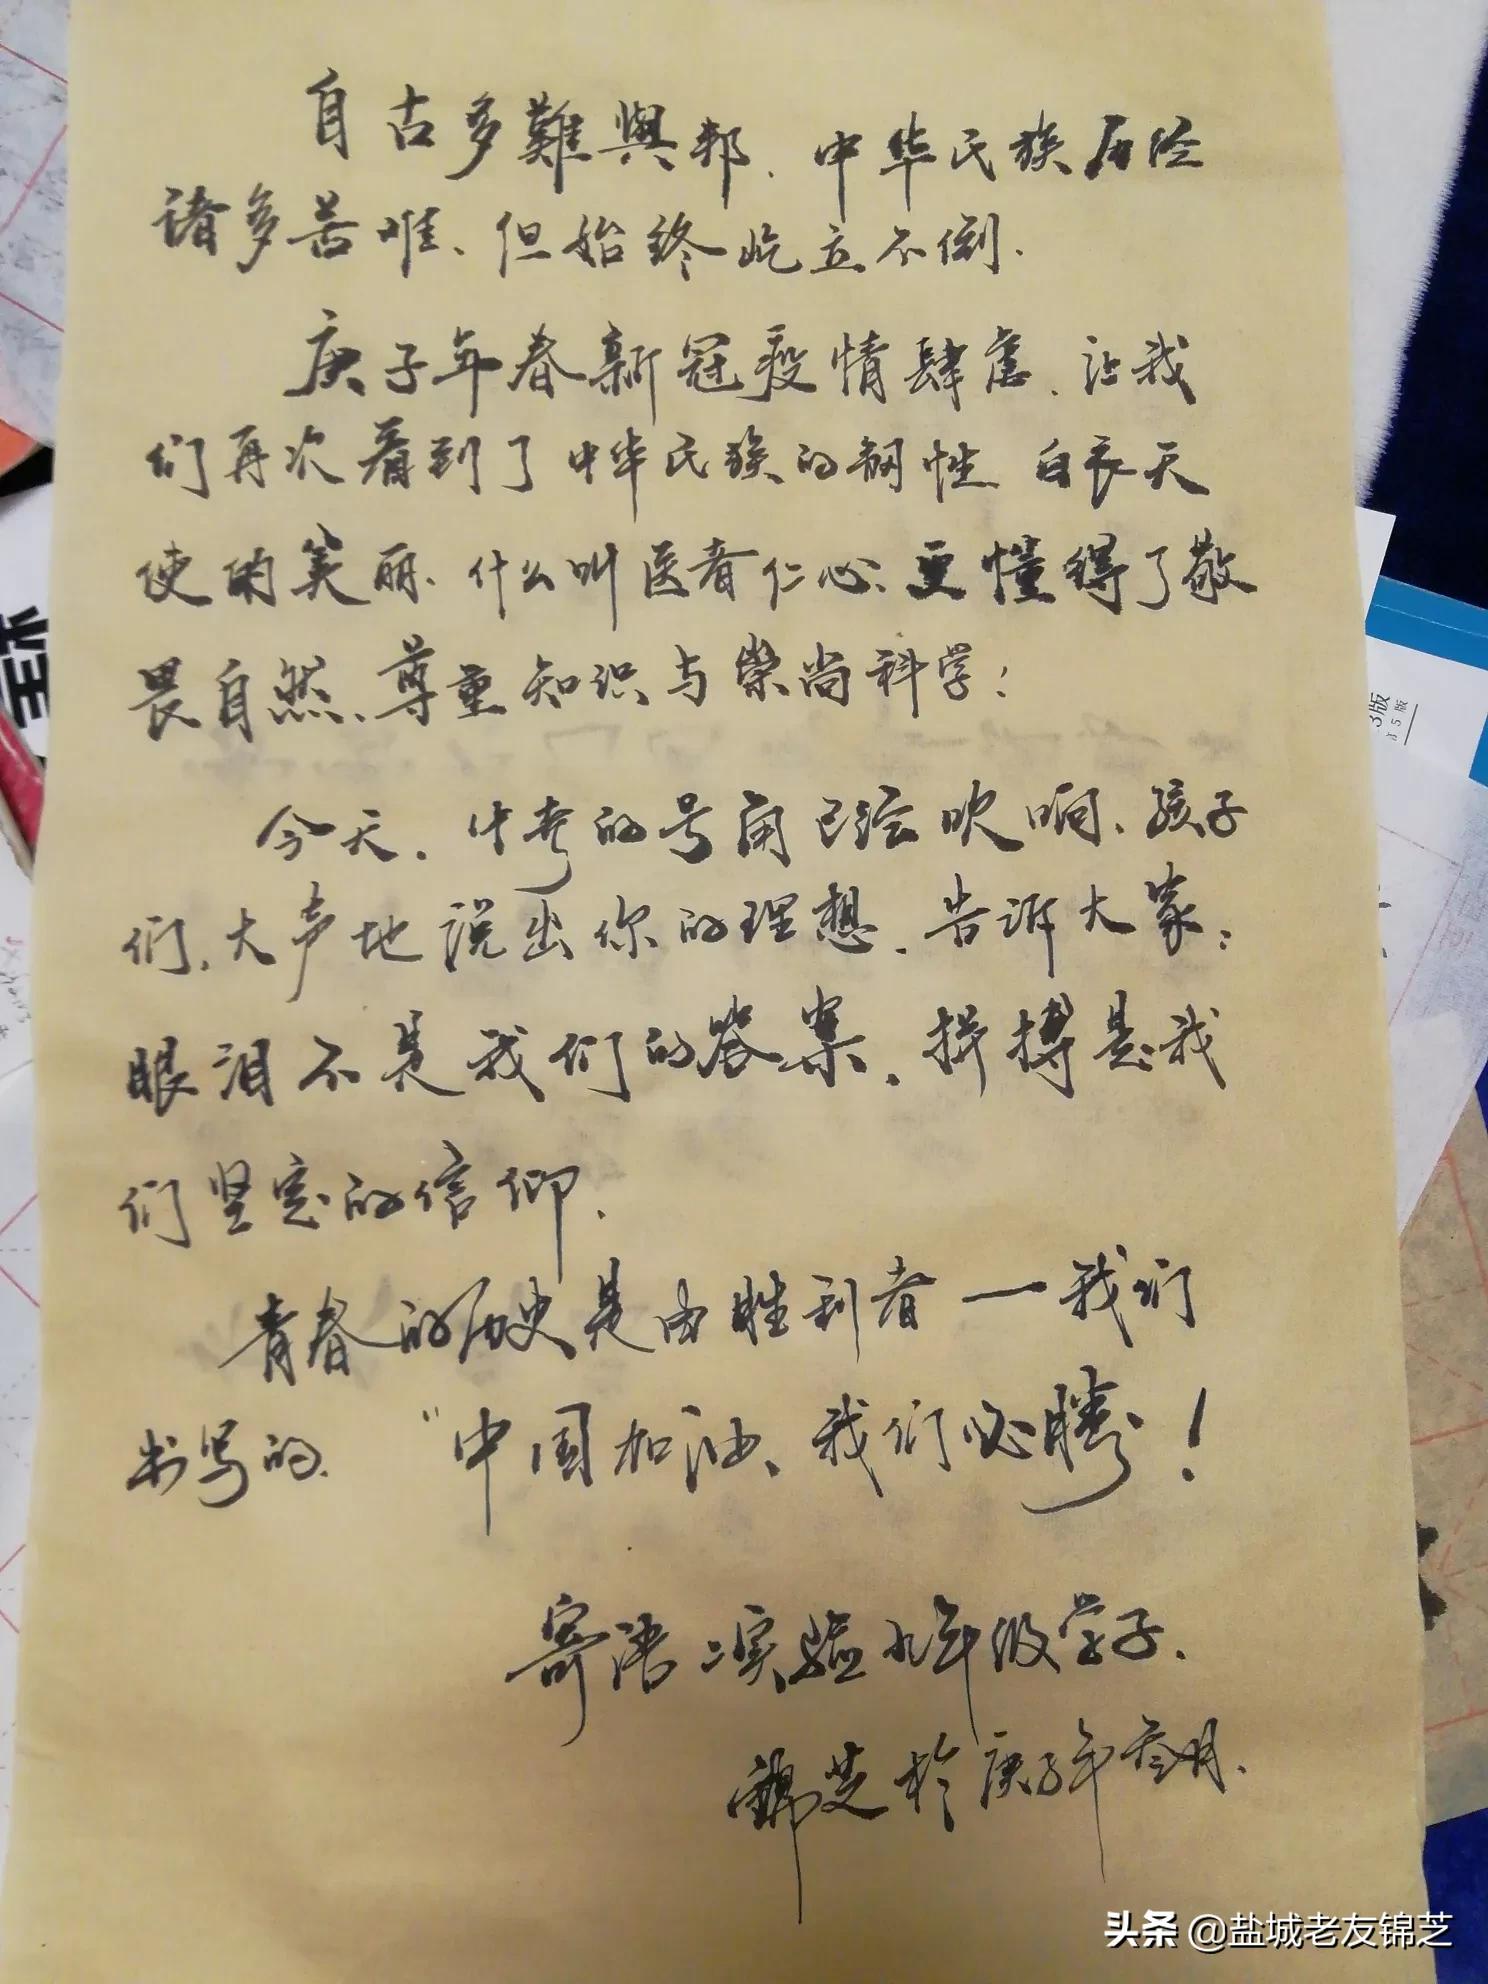 自古多難興邦、中华民族历经
诸多苦难、但始终屹立不倒.
庚子年春新冠疫情肆虐、让我
们再次看到了中华民族的韧性、白衣天
使的美丽、什么叫医者仁心、更懂得了敬
畏自然、尊重知识与崇尚科学！
今天、中考的号角已经吹响、孩子
们、大声地说出你的理想、告诉大家：
眼泪不是我们的答案、拼搏是我
们坚定的信仰.
青春的历史是由胜利者一我们
书写的. “中国加油、我们必勝！
寄语二实验九年级学子.
锦芝於庚子年叁月.
3版
第5版
头条 @盐城老友锦芝